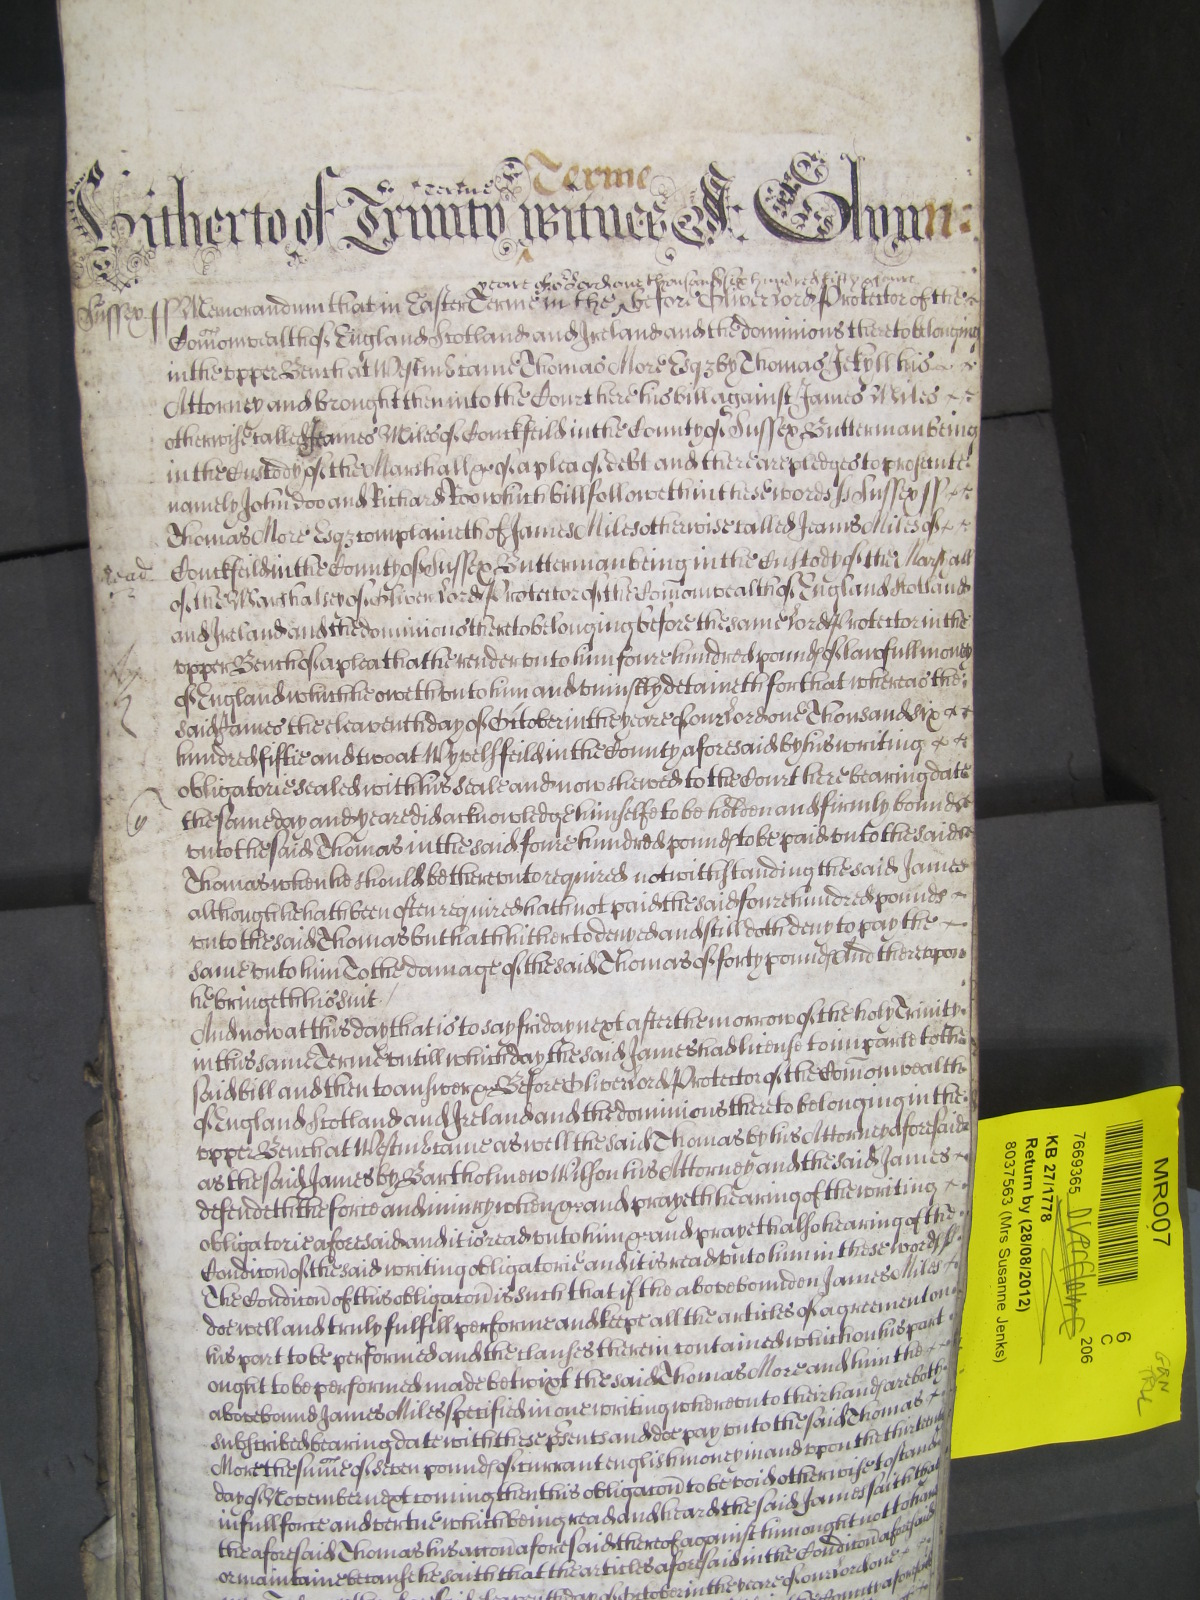 Terme
Hitherto of Trinity terme witnes Glynn:
yeare of or Lord one thousand six hundred fifty & foure
Sussex ss Memorandum that in Easter Terme in the ^ before Oliver Lord Protector of the
Comonwealth of England Scotland and Ireland and the dominions thereto belonging
in the upper Bench at Westmr came Thomas More Esqz by Thomas Jekyll his
Attorney and brought then into the Court here his bill against James Miles
otherwise called Jeames Miles of Couckfeild in the County of Sussex Butterman being
in the Custody of the Marshall &c of a plea of debt and there are pledges to prosecute
namely John Doo and Richard Roo which bill followeth in these words ss Sussex ss
Thomas More Esqz complaineth of James Miles otherwise called Jeams Miles of
read Couckfeild in the County of Sussex Butterman being in the Custody of the Marshall
of the Marshalsey of Oliver Lord Protector of the Comonwealth of England Scotland
and Ireland and the dominions thereto belonging before the same Lord Protector in the
upper Bench of a plea that he render unto him foure hundred pounds of lawfull money
of England which he oweth unto him and uniustly detaineth for that whereas the
said James the eleaventh day of October in the yeare of our Lord one Thousand six
hundred fiftie and two at Wyvelsfeild in the County aforesaid by his writing
obligatorie sealed with his seale and now shewed to the Court here bearing date
the same day and yeare did acknowledge himselfe to be holden and firmly bound
unto the said Thomas in the said foure hundred pounds to be paid unto the said
Thomas when he should be thereunto required notwithstanding the said James
although he hath been often required hath not paid the said foure hundred pounds
unto the said Thomas but hath hitherto denyed and still doth deny to pay the
same unto him To the damage of the said Thomas of forty pounds And thereupon
he bringeth his suit /
And now at this day that is to say friday next after the morrow of the holy Trinity
in this same Terme untill which day the said James had license to imparle to the
said bill and then to answer &c Before Oliver Lord Protector of the Comonwealth
of England Scotland and Ireland and the dominions thereto belonging in the
upper Bench at Westmr came as well the said Thomas by his Attorney aforesaid
as the said James by Bartholmew Wilson his Attorney and the said James
defendeth the force and iniury when &c and prayeth hearing of the writing
obligatorie aforesaid and it is read unto him &c and prayeth also hearing of the
Condicon of the said writing obligatorie and it is read unto him in these words ss
The Condicon of this obligacon is such that if the above bounden James Miles
doe well and truly fulfill performe and keepe all the articles of agreement on
his part to be performed and the clauses therein contained which on his part
ought to be performed made betwixt the said Thomas More and him the
above bound James Miles specified in one writing whereunto there hands are both
subscribed bearing date with these psents and doe pay unto the said Thomas
More the sume of seven pounds of currant english money in and upon the thirteenth
day of November next coming then this obligacon to be void otherwise to stand
in full force and vertue which being read and heard the said James saith that
the aforesaid Thomas his accon aforesaid thereof against him ought not to have
or maintaine because he saith that the articles aforesaid in the Condicon aforesaid
MRO07
7669365
6
C
206
KB 27/1778
Return by (28/08/2012)
8037563 (Mrs Susanne Jenks)